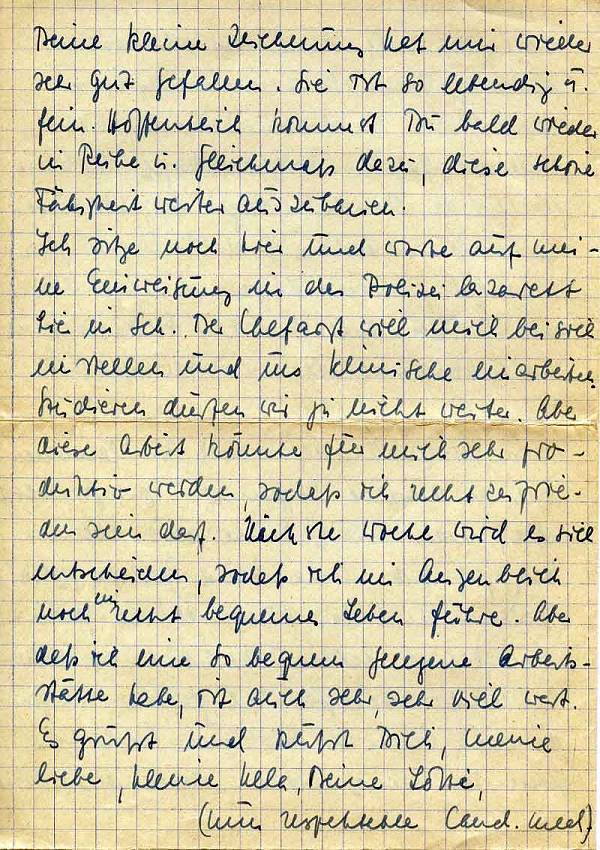 Deine kleine Zeichnung hat mir wieder
sehr gut gefallen. Sie ist so lebendig u.
fein. Hoffentlich kommst Du bald wieder
in Ruhe u. Gleichmaß dazu, diese schöne
Fähigkeit weiter auszubauen.
Ich sitze noch hier und warte auf mei-
ne Einweisung in das Polizeilazarett
hie in Sch.. Der Chefarzt will mich bei sich
einstellen und ins klinische einarbeiten.
Studieren dürfen wir ja nicht weiter. Aber
diese Arbeit könnte für mich sehr pro-
duktiv werden, sodaß ich recht zufrie-
den sein darf. Nächste Woche wird es sich
entscheiden, sodaß ich im Augenblick
noch ein recht bequemes Leben führe. Aber
daß ich eine so bequem gelegene Arbeits-
stätte habe, ist auch sehr, sehr viel wert.
Es grüßt und küßt Dich, meine
liebe, kleine Deine
(nun Cand. med.)